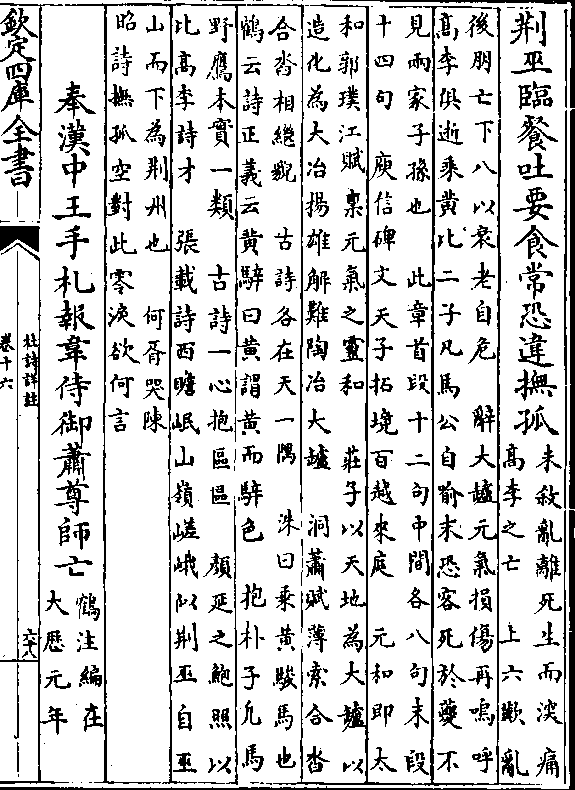 荆巫臨餐吐要食常恐違撫孤
末敘亂離死生而深痛
高李之亡　上六歎亂
後朋亡下八以衰老自危　辭大罏元氣損傷再嗚呼
高李俱逝乘黄比二子凡馬公自喻末恐客死於夔不
見兩家子孫也　此章首段十二句中間各八句末段
十四句　庾信碑文天子拓境百越來庭　元和即太
和郭璞江賦稟元氣之靈和　莊子以天地為大罏以
造化為大冶揚雄解難陶冶大罏　洞簫賦薄索合沓
合沓相繼貌　古詩各在天一隅　洙曰乘黄駿馬也
鶴云詩正義云黄騂曰黄謂黄而騂色　抱朴子凡馬
野鷹本實一類　古詩一心抱區區　顔延之鮑照以
比高李詩才　張載詩西瞻岷山嶺嵯峨似荆巫自巫
山而下為荆州也　何胥哭陳
昭詩撫孤空對此零淚欲何言
奉漢中王手札報韋侍御蕭尊師亡
鶴注編在
大厯元年
欽定四庫全書
杜詩詳註
卷十六
六十八